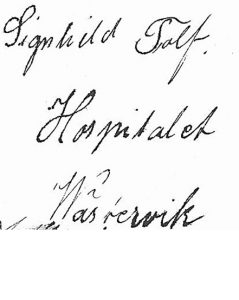 Signhild Tolf.
Hospitalet
Västervik